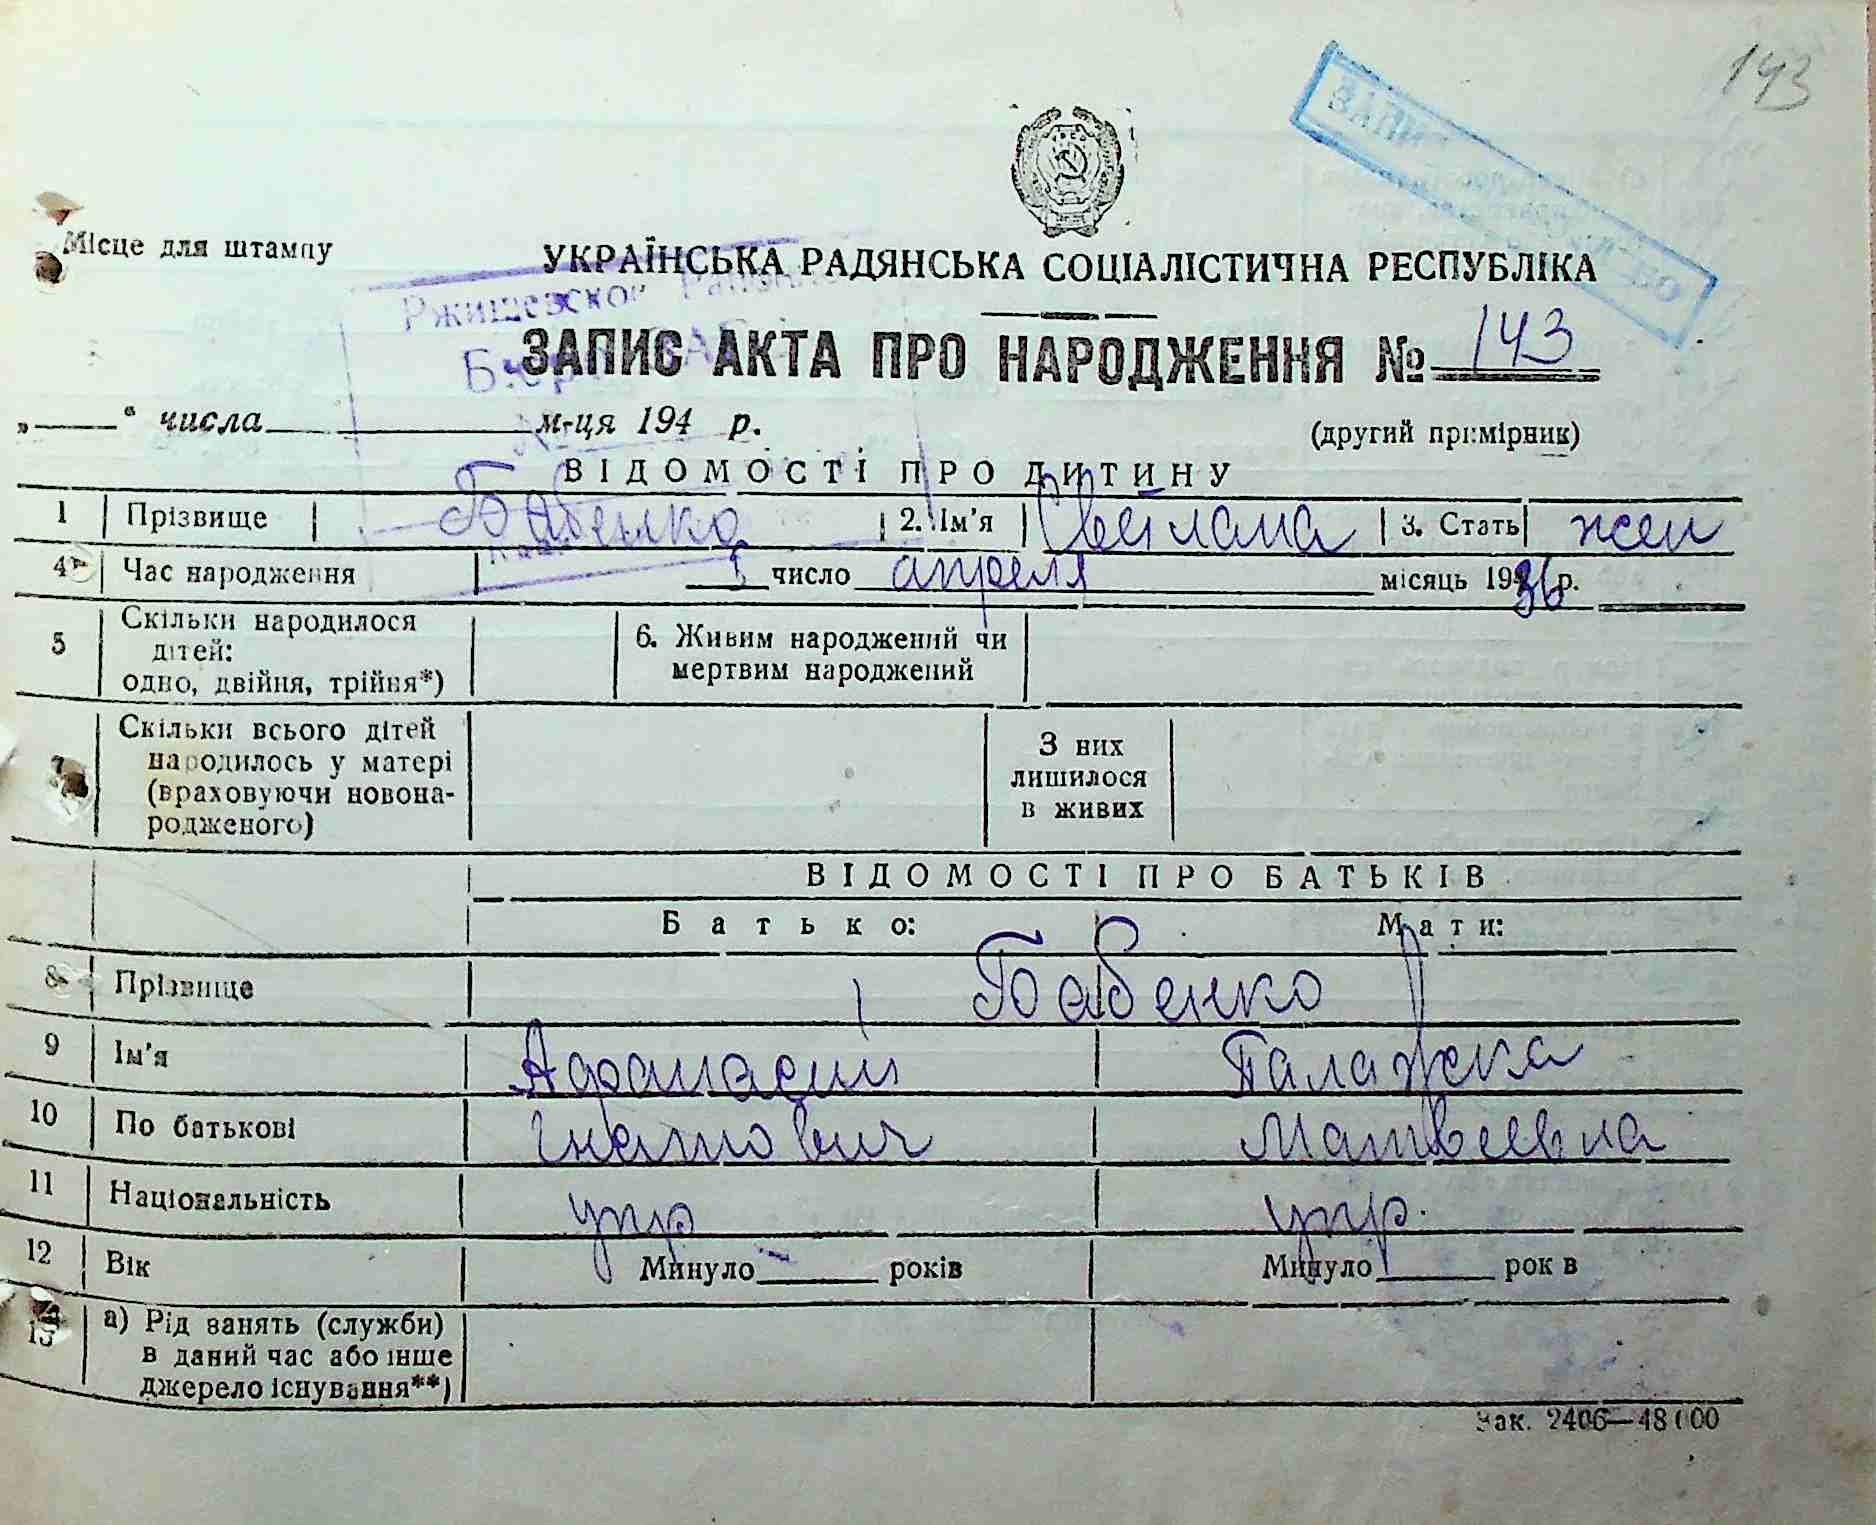 143
Місце для штампу
УКРАЇНСЬКА РАДЯНСЬКА СОЦІАЛІСТИЧНА РЕСПУБЛІКА
Ржищевское
ЗАПИС АКТА ПРО НАРОДЖЕННЯ № 143
„ “ числа м-ця 194 р.
(другий примірник)
ВІДОМОСТІ ПРО ДИТИНУ
1 Прізвище Бабенко 2. Ім'я Светлана 3. Стать жен
4 Час народження число апреля місяць 1936 р.
5 Скільки народилося
дітей:
одно, двійня, трійня*)
6. Живим народжений чи
мертвим народжений
7 Скільки всього дітей
народилось у матері
(враховуючи новона-
родженого)
З них
лишилося
в живих
ВІДОМОСТІ ПРО БАТЬКІВ
Батько: Мати:
8 Прізвище Бабенко
9 Ім'я Афанасий Палажка
10 По батькові Гнатович Матвеевна
11 Національність укр укр.
12 Вік Минуло років Минуло рок в
13 а) Рід занять (служби)
в даний час або інше
джерело існування**)
Зак. 2406—48000